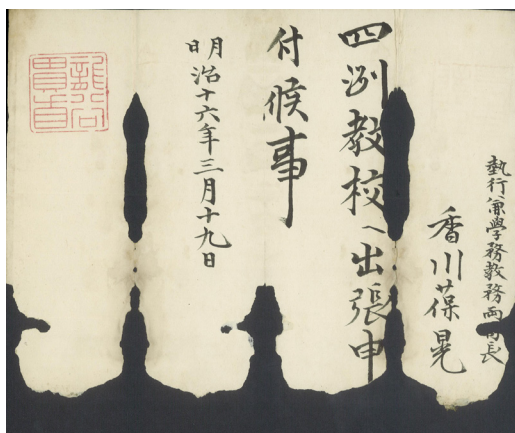 執行兼學務教務両局長
香川葆晃
四洲教校へ出張申
付候事
明治十六年三月十九日
龍谷